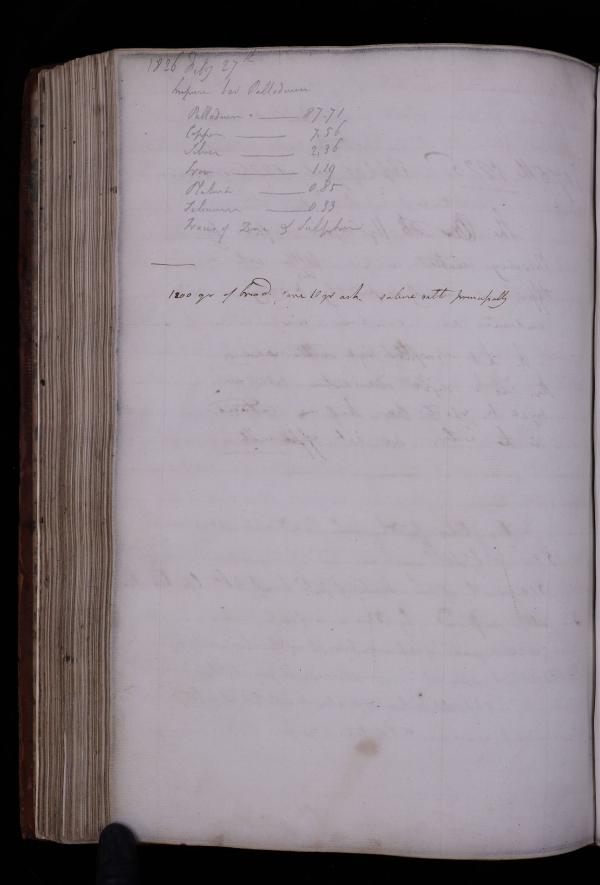 1826 Feby 27th
Impure bar Palladium
Palladium - 87.71
Copper 7.56
Silver 2.36
Iron 1.19
Platina 0.85
Selenium 0.33
Traces of Zinc & Sulphur
1200 gr of bread gave 10 gr ash saline matt principally